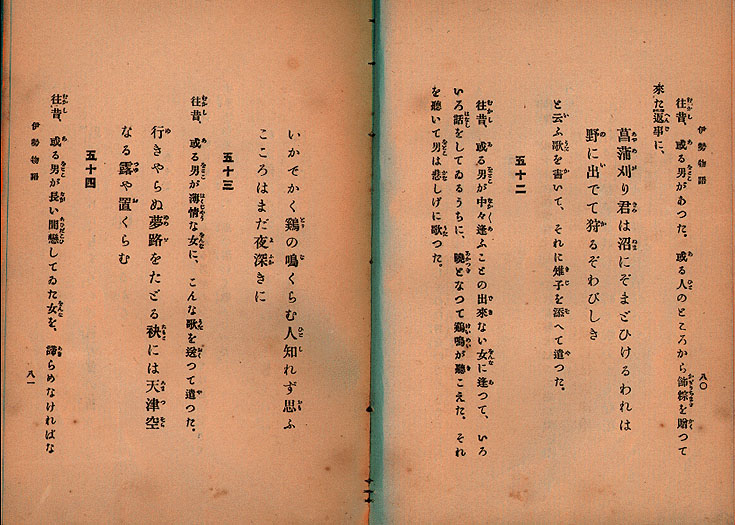 伊勢物語
八〇
往昔、或る男があつた。或る人のところから飾粽を贈つて
來た返事に、
菖蒲刈り君は沼にぞまどひけるわれは
野に出でて狩るぞわびしき
と云ふ歌を書いて、それに雉子を添へて遣つた。
五十二
往昔、或る男が中々逢ふことの出來ない女に逢つて、いろ
いろ話をしてゐるうちに、曉となつて鷄鳴が聽こえた。それ
を聽いて男は悲しげに歌つた。
いかでかく鷄の鳴くらむ人知れず思ふ
こころはまだ夜深きに
五十三
往昔、或る男が薄情な女に、こんな歌を送つて遣つた。
行きやらぬ夢路をたどる袂には天津空
なる露や置くらむ
五十四
往昔、或る男が長い間戀してゐた女を、諦らめなければな
伊勢物語
八一